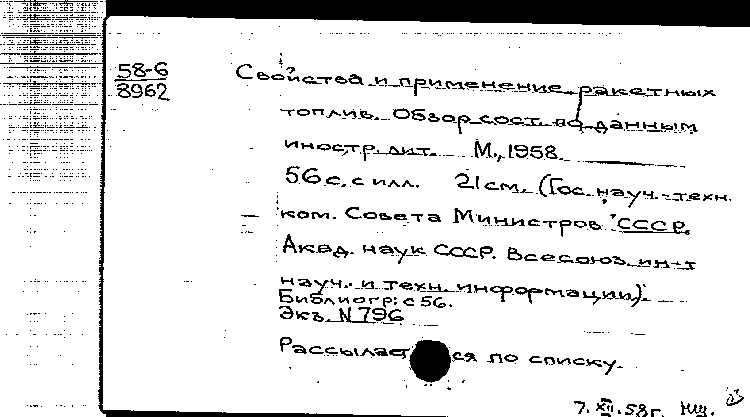 58-6
8962
Свойства и применение ракетных
топлив. Обзор сост. по данным
иностр. лит. М., 1958.
56 с. с илл. 21 см. (Гос. науч.-техн.
ком. Совета Министров СССР.
Акад. наук СССР. Всесоюз. ин-т
науч. и техн. информации).
Библиогр: с 56.
Экз. N 796
Рассылается по списку.
7.XII.58г.